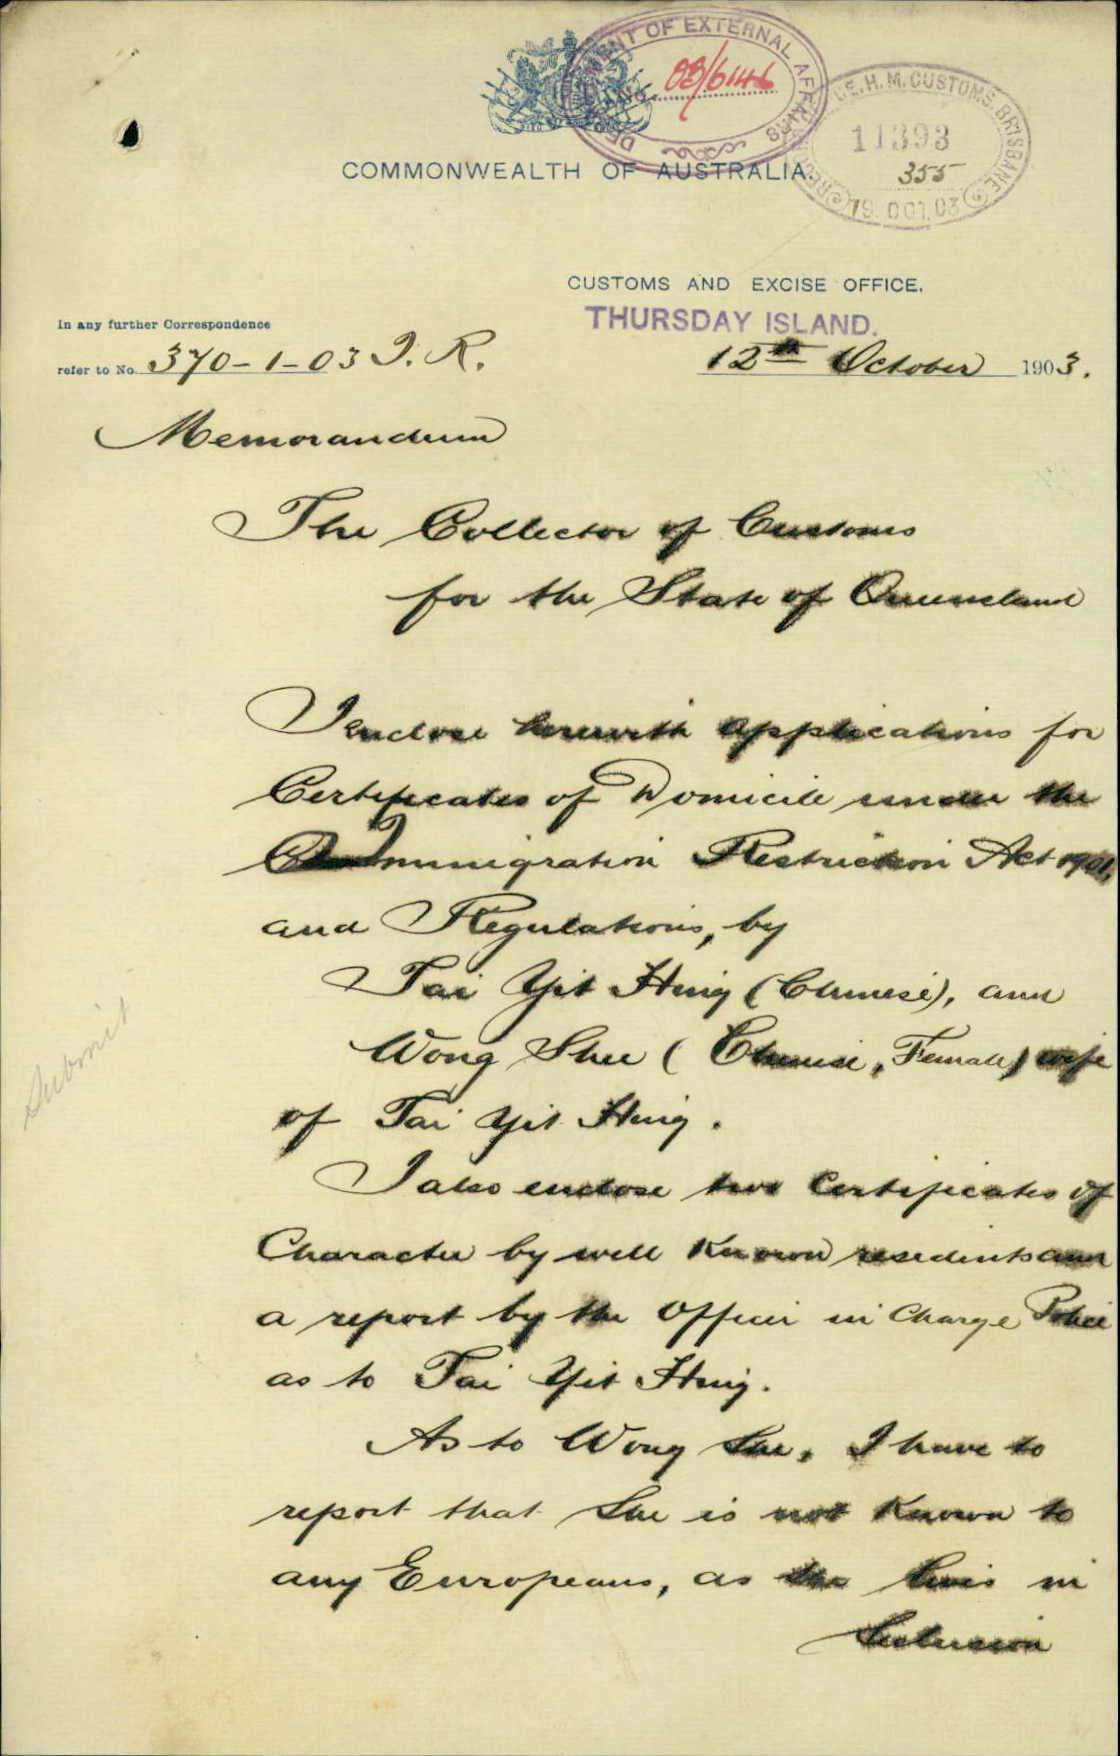 DEPARTMENT OF EXTERNAL AFFAIRS
No. 03/6146
H.M. CUSTOMS. BRISBANE
11393
355
19. OCT. 03
COMMONWEALTH OF AUSTRALIA.
CUSTOMS AND EXCISE OFFICE.
THURSDAY ISLAND.
In any further Correspondence
refer to No. 370-1-03 I. R.
12th October 1903.
Memorandum
The Collector of Customs
for the State of Queensland
I enclose herewith applications for
Certificates of Domicile under the
Immigration Restriction Act 1901,
and Regulations, by
Tai Yit Hing (Chinese), and
Wong Shee (Chinese, Female) wife
of Tai Yit Hing.
I also enclose two Certificates of
Character by well known residents and
a report by the Officer in Charge Police
as to Tai Yit Hing.
As to Wong She, I have to
report that She is not known to
any Europeans, as she lives in
Seclusion
Submit